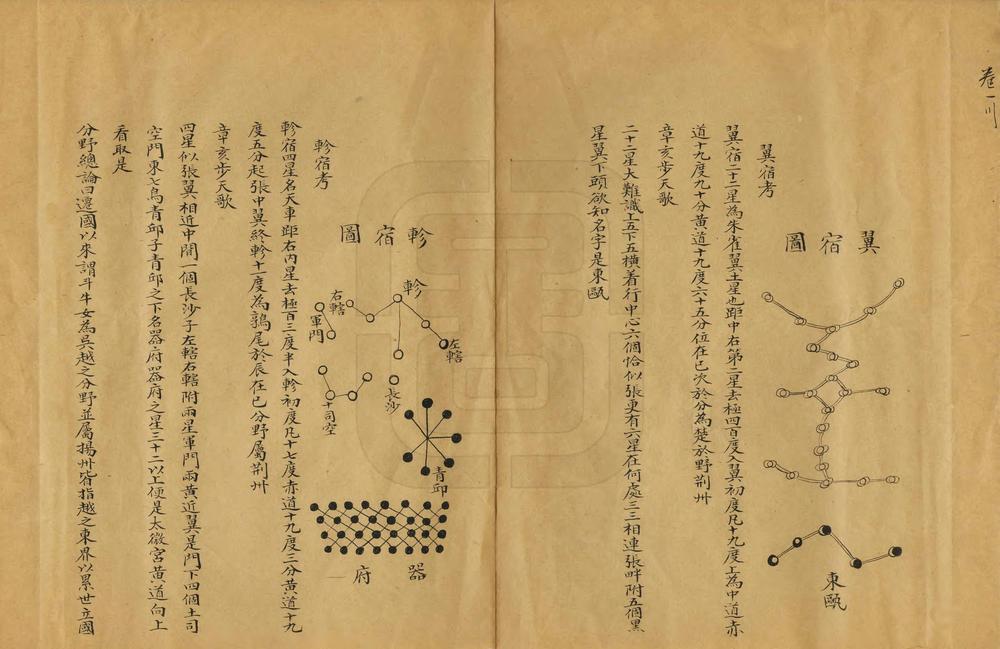 卷一
翼宿圖
東甌
翼宿考
翼宿二十二星為朱雀翼土星也距中右第二星去極四百度入翼初度凡十九度上為中道赤
道十九度九十分黃道十九度六十五分位在巳次於分為楚於野荊州
章亥步天歌
二十二星大難識上五下五橫着行中心六個恰似張更有六星在何處三三相連張畔附五個黑
星翼下頭欲知名字是東甌
軫宿圖
軫
左轄
右轄
軍門
長沙
土司空
青邱
器府
軫宿考
軫宿四星名天車距右內星去極百三度半入軫初度凡十七度赤道十九度三分黃道十九
度五分起張中翼終軫十一度為鶉尾於辰在巳分野屬荊州
章亥步天歌
四星似張翼相近中間一個長沙子左轄右轄附兩星軍門兩黃近翼是門下四個土司
空門東七烏青邱子青邱之下名器府器府之星三十二以上便是太微宮黃道向上
看取是
分野總論曰遷國以來謂斗牛女為吳越之分野並屬揚州皆指越之東界以累世立國